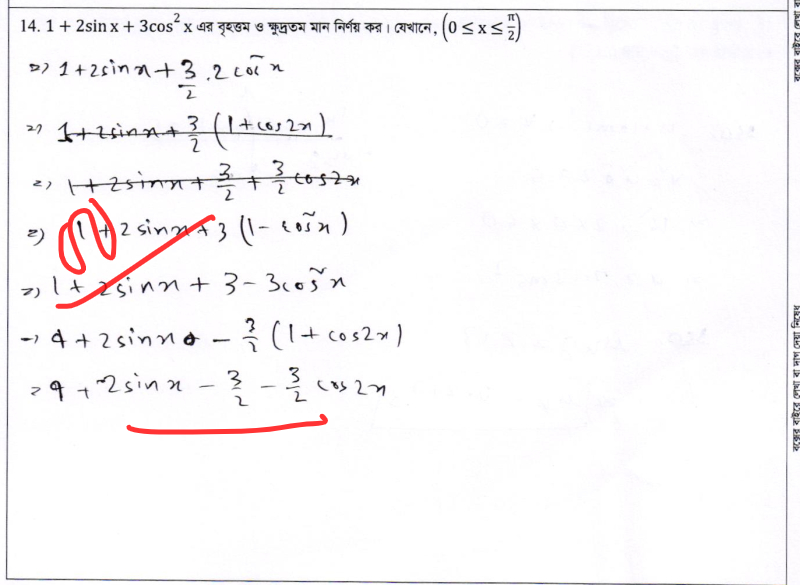 14. 1 + 2sin x + 3cos² x এর বৃহত্তম ও ক্ষুদ্রতম মান নির্ণয় কর। যেখানে, (0 ≤ x ≤ π/2)
⇒ 1 + 2sin x + 3/2 . 2 cos² x
⇒ 1 + 2sin x + 3/2 (1 + cos2x)
⇒ 1 + 2sin x + 3/2 + 3/2 cos2x
⇒ 1 + 2sin x + 3 (1 - cos² x)
⇒ 1 + 2sin x + 3 - 3cos² x
⇒ 4 + 2sin x - 3/2 (1 + cos2x)
= 4 + 2sin x - 3/2 - 3/2 cos 2x